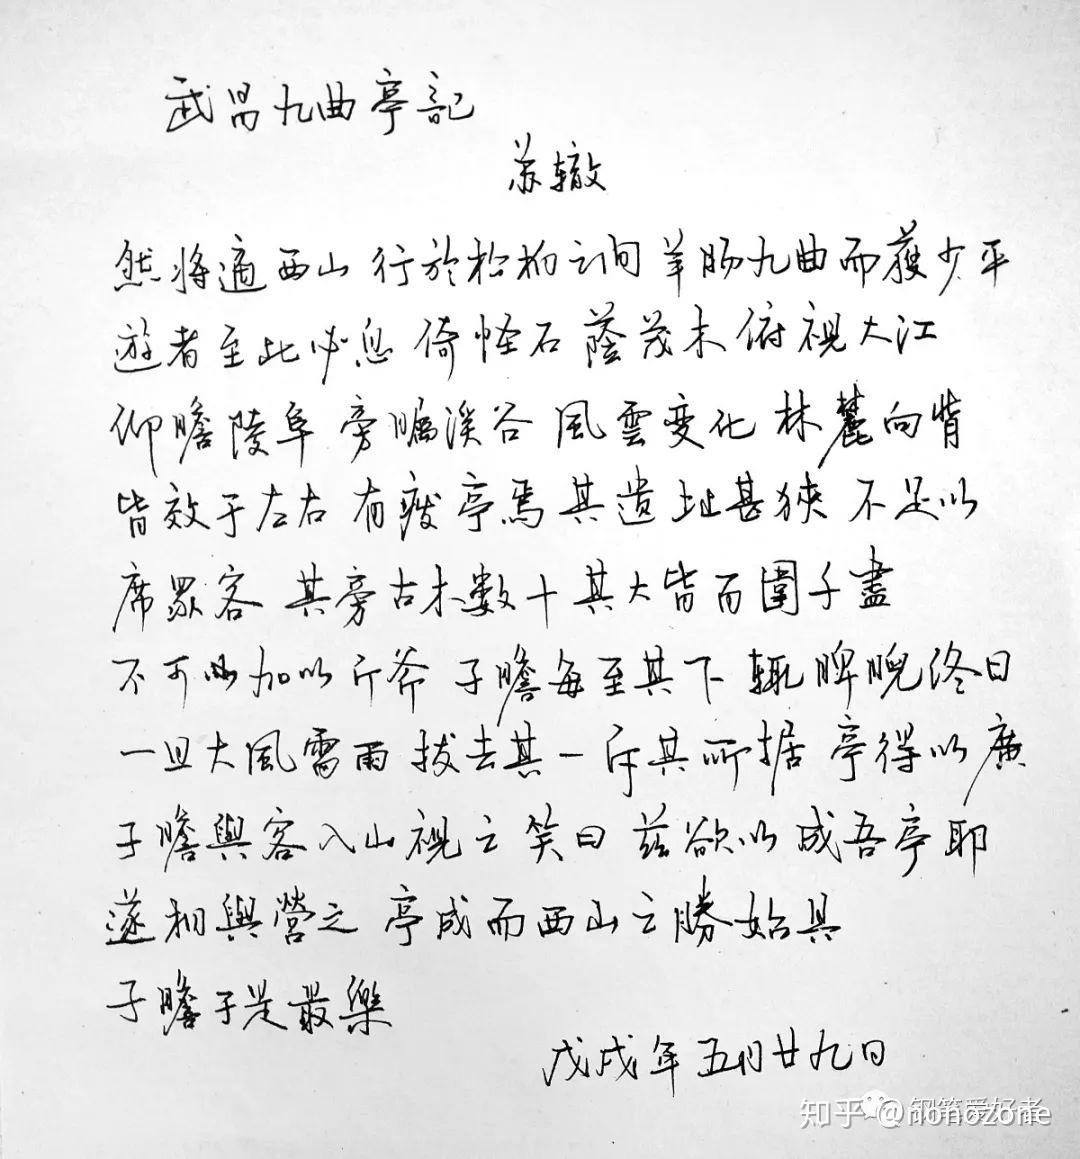 武昌九曲亭記
苏辙
然将適西山 行於松柏之间 羊肠九曲而獲少平
遊者至此必息 倚怪石 蔭茂木 俯視大江
仰瞻陵阜 旁矚溪谷 風雲変化 林麓向背
皆效于左右 有廢亭焉 其遺址甚狹 不足以
席眾客 其旁古木数十 其大皆百圍千尋
不可加以斤斧 子瞻每至其下 輒睥睨终日
一旦大風雷雨 拔去其一 斥其所据 亭得以廣
子瞻與客入山視之 笑曰 兹欲以成吾亭耶
遂相與營之 亭成而西山之勝始具
子瞻于是最樂
戊戌年五月廿九日
知乎 @nonozone
钢笔爱好者